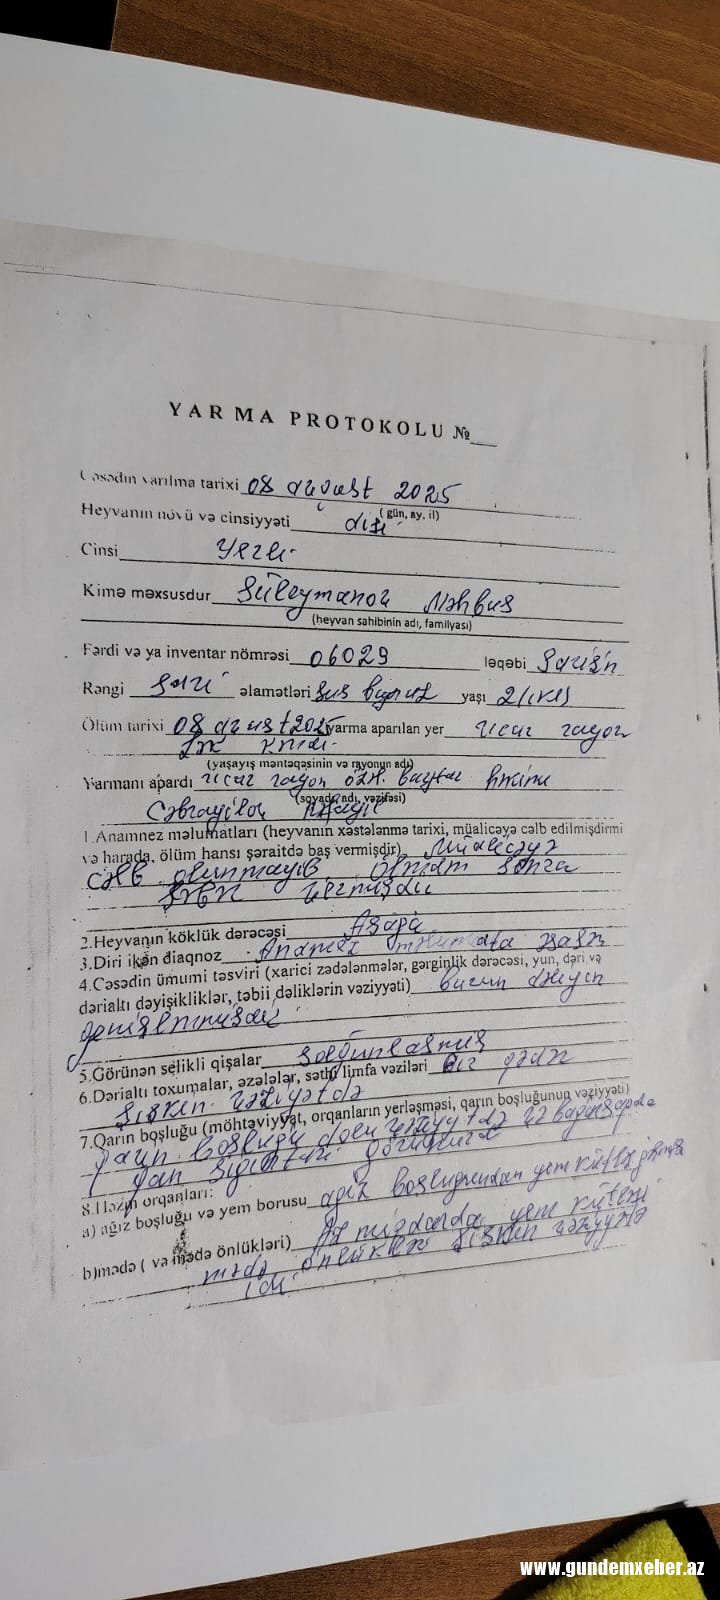 YARMA PROTOKOLU №___
Cəsədin yarılma tarixi 08 avqust 2025
( gün, ay, il)
Heyvanın növü və cinsiyyəti dişi
Cinsi Yerli
Kimə məxsusdur Süleymanov Məhbus
(heyvan sahibinin adı, familyası)
Fərdi və ya inventar nömrəsi 06029 ləqəbi Sarışın
Rəngi sarı əlamətləri şuş buynuz yaşı 2(iki)
Ölüm tarixi 08 avqust 2025 yarma aparılan yer Ucar rayon
Lək kəndi
(yaşayış məntəqəsinin və rayonun adı)
Yarmanı apardı Ucar rayon özəl baytar həkimi
(soyadı, adı, vəzifəsi)
Cəbrayilov
1.Anamnez məlumatları (heyvanın xəstələnmə tarixi, müalicəyə cəlb edilmişdirmi
və harada, ölüm hansı şəraitdə baş vermişdir) Müalicəyə
cəlb olunmayıb ölümdən sonra
2.Heyvanın köklük dərəcəsi Aşağı
3.Diri ikən diaqnoz Anamnez məlumata əsasən
4.Cəsədin ümumi təsviri (xarici zədələnmələr, gərginlik dərəcəsi, yun, dəri və
dərialtı dəyişikliklər, təbii dəliklərin vəziyyəti) burun dəliyin
genişlənmişdi
5.Görünən selikli qişalar solğunlaşmış
6.Dərialtı toxumalar, əzələlər, səthi limfa vəziləri bir qədər
şişkin vəziyətdə
7.Qarın boşluğu (möhtəviyyat, orqanların yerləşməsi, qarın boşluğunun vəziyyəti)
qarın boşluğu dolu vəziyytdə və bağırsaqda
qan sığıntıları görünürdü
8.Həzm orqanları:
a) ağız boşluğu və yem borusu ağız boşluğundan yem kütləsi
b)mədə ( və mədə önlükləri) Az miqdarda yem kütləsi
mədə önlükləri şişkin vəziyyətdə
idi
www.gundemxeber.az